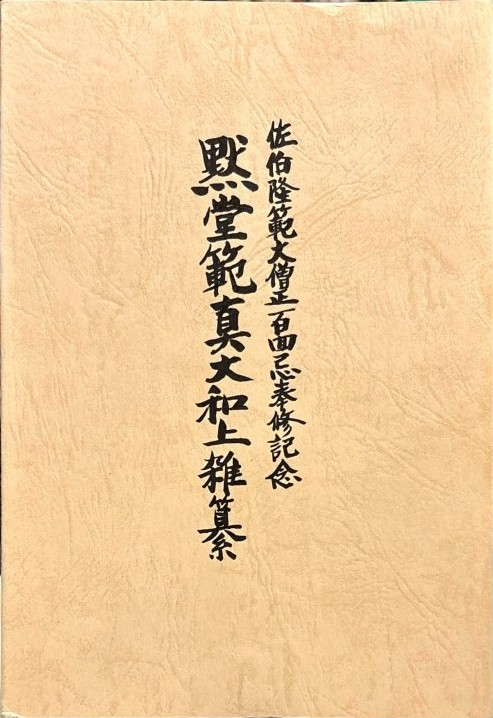 佐伯隆範大僧正百回忌奉修記念
黙堂範真大和上雑纂